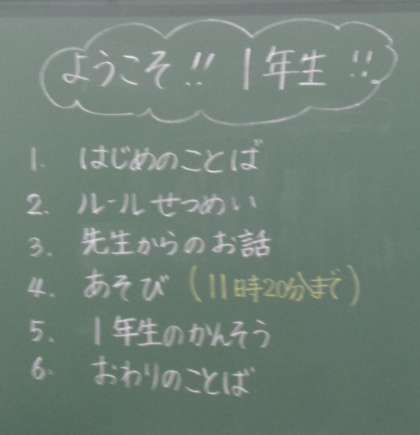 ようこそ!! 1年生!!
1. はじめのことば
2. ルールせつめい
3. 先生からのお話
4. あそび (11時20分まで)
5. 1年生のかんそう
6. おわりのことば